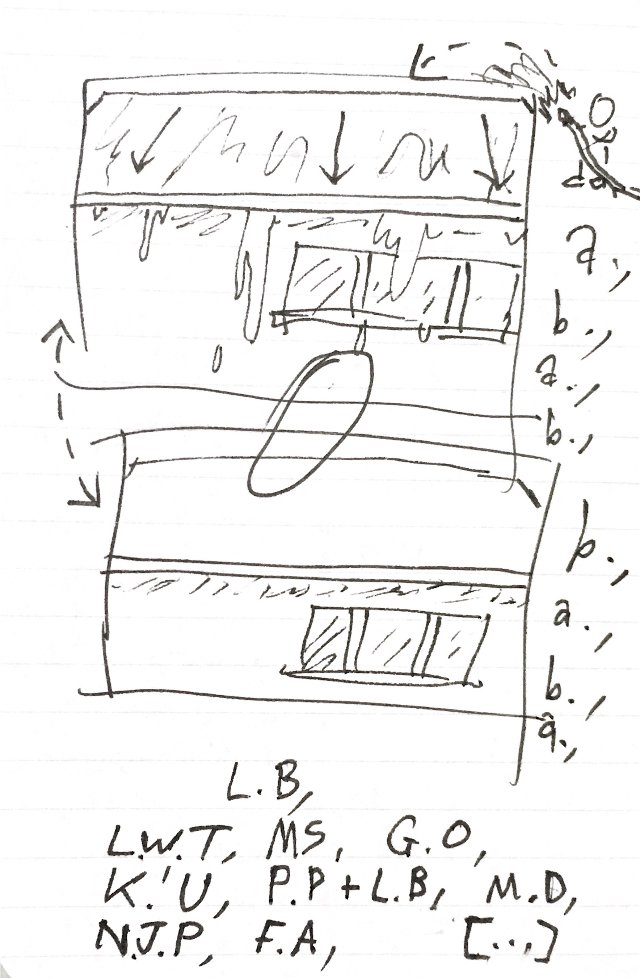 a.,
b.,
a.,
b.,
b.,
a.,
b.,
a.,
L.B,
L.W.T, MS, G.O,
K.'U, P.P + L.B, M.D,
N.J.P, F.A, [...]